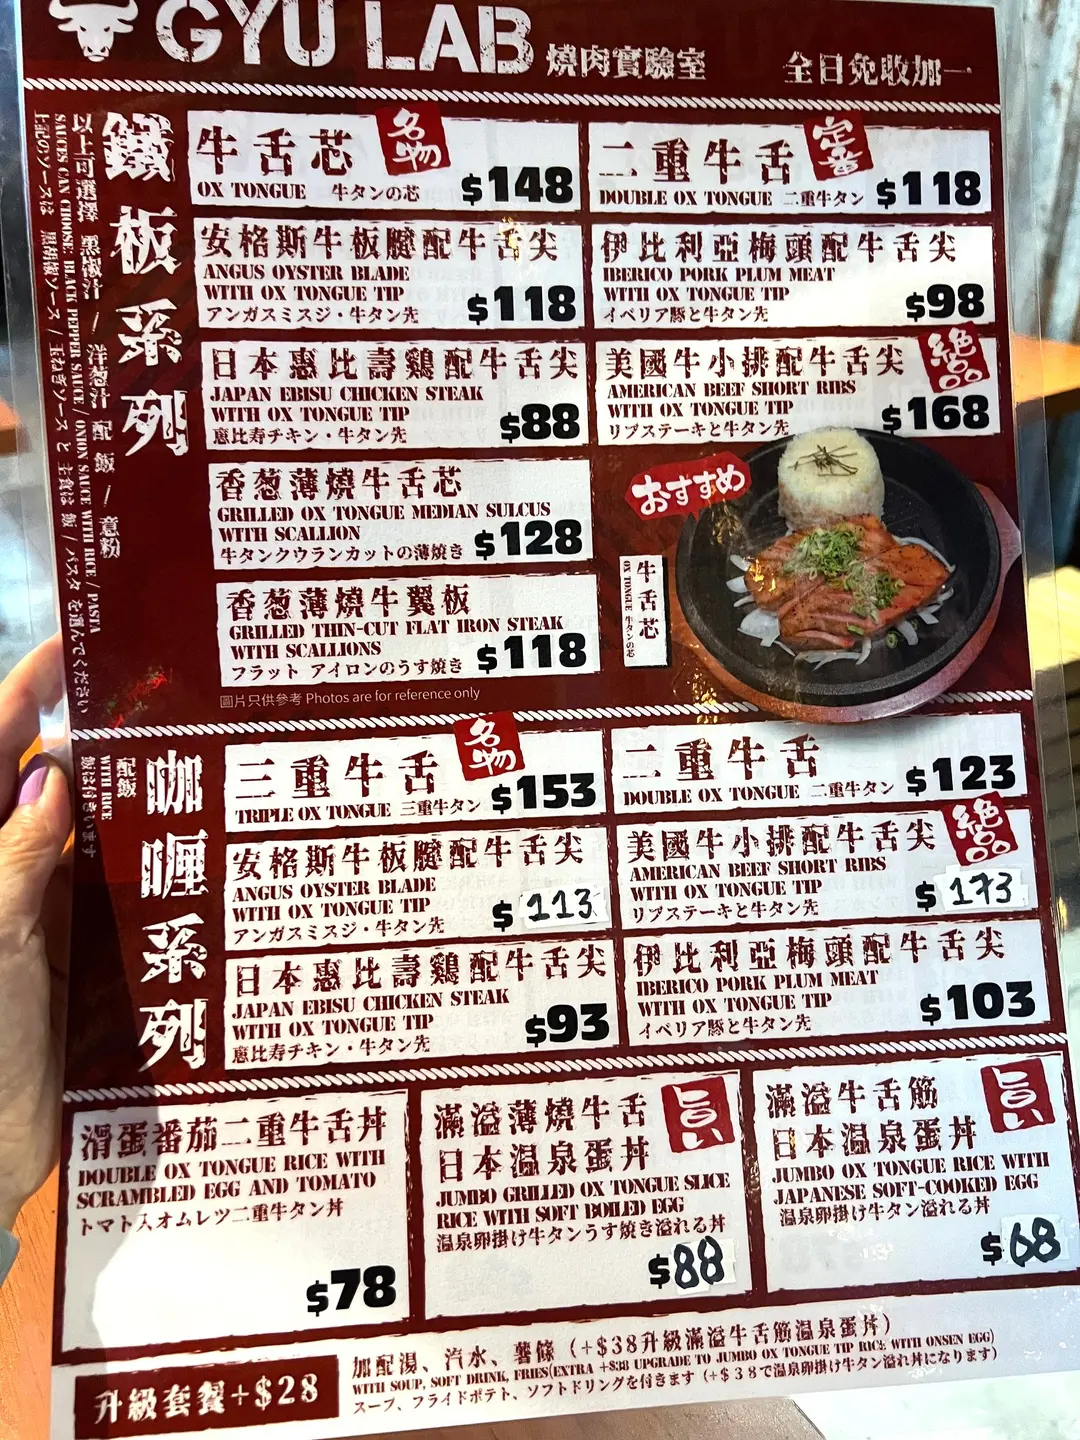 GYU LAB 燒肉實驗室
全日免收加一
鐵板系列
以上可選擇 黑椒汁 / 洋葱汁 配 飯 / 意粉
SAUCES CAN CHOOSE: BLACK PEPPER SAUCE / ONION SAUCE WITH RICE / PASTA
上記のソースは 黒胡椒ソース / 玉ねぎソース と 主食は 飯 / パスタ を選んでください
牛舌芯
名物
OX TONGUE 牛タンの芯
$148
二重牛舌
定番
DOUBLE OX TONGUE 二重牛タン
$118
安格斯牛板腱配牛舌尖
ANGUS OYSTER BLADE
WITH OX TONGUE TIP
アンガスミスジ・牛タン先
$118
伊比利亞梅頭配牛舌尖
IBERICO PORK PLUM MEAT
WITH OX TONGUE TIP
イベリア豚と牛タン先
$98
日本惠比壽鷄配牛舌尖
JAPAN EBISU CHICKEN STEAK
WITH OX TONGUE TIP
恵比寿チキン・牛タン先
$88
美國牛小排配牛舌尖
絕品
AMERICAN BEEF SHORT RIBS
WITH OX TONGUE TIP
リブステーキと牛タン先
$168
香葱薄燒牛舌芯
GRILLED OX TONGUE MEDIAN SULCUS
WITH SCALLION
牛タンクウランカットの薄焼き
$128
香葱薄燒牛翼板
GRILLED THIN-CUT FLAT IRON STEAK
WITH SCALLIONS
フラット アイロンのうす焼き
$118
おすすめ
牛舌芯
OX TONGUE 牛タンの芯
圖片只供參考 Photos are for reference only
咖喱系列
配飯
WITH RICE
飯は付きいます
三重牛舌
名物
TRIPLE OX TONGUE 三重牛タン
$153
二重牛舌
DOUBLE OX TONGUE 二重牛タン
$123
安格斯牛板腱配牛舌尖
ANGUS OYSTER BLADE
WITH OX TONGUE TIP
アンガスミスジ・牛タン先
$113
美國牛小排配牛舌尖
絕品
AMERICAN BEEF SHORT RIBS
WITH OX TONGUE TIP
リブステーキと牛タン先
$173
日本惠比壽鷄配牛舌尖
JAPAN EBISU CHICKEN STEAK
WITH OX TONGUE TIP
恵比寿チキン・牛タン先
$93
伊比利亞梅頭配牛舌尖
IBERICO PORK PLUM MEAT
WITH OX TONGUE TIP
イベリア豚と牛タン先
$103
滑蛋番茄二重牛舌丼
DOUBLE OX TONGUE RICE WITH
SCRAMBLED EGG AND TOMATO
トマト入オムレツ二重牛タン丼
$78
滿溢薄燒牛舌
日本温泉蛋丼
旨い
JUMBO GRILLED OX TONGUE SLICE
RICE WITH SOFT BOILED EGG
温泉卵掛け牛タンうす焼き溢れる丼
$88
滿溢牛舌筋
日本温泉蛋丼
旨い
JUMBO OX TONGUE RICE WITH
JAPANESE SOFT-COOKED EGG
温泉卵掛け牛タン溢れる丼
$68
升級套餐+$28
加配湯、汽水、薯條 (+$38升級滿溢牛舌筋温泉蛋丼)
WITH SOUP, SOFT DRINK, FRIES(EXTRA +$38 UPGRADE TO JUMBO OX TONGUE TIP RICE WITH ONSEN EGG)
スープ、フライドポテト、ソフトドリングを付きます (+$38で温泉卵掛け牛タン溢れ丼になります)